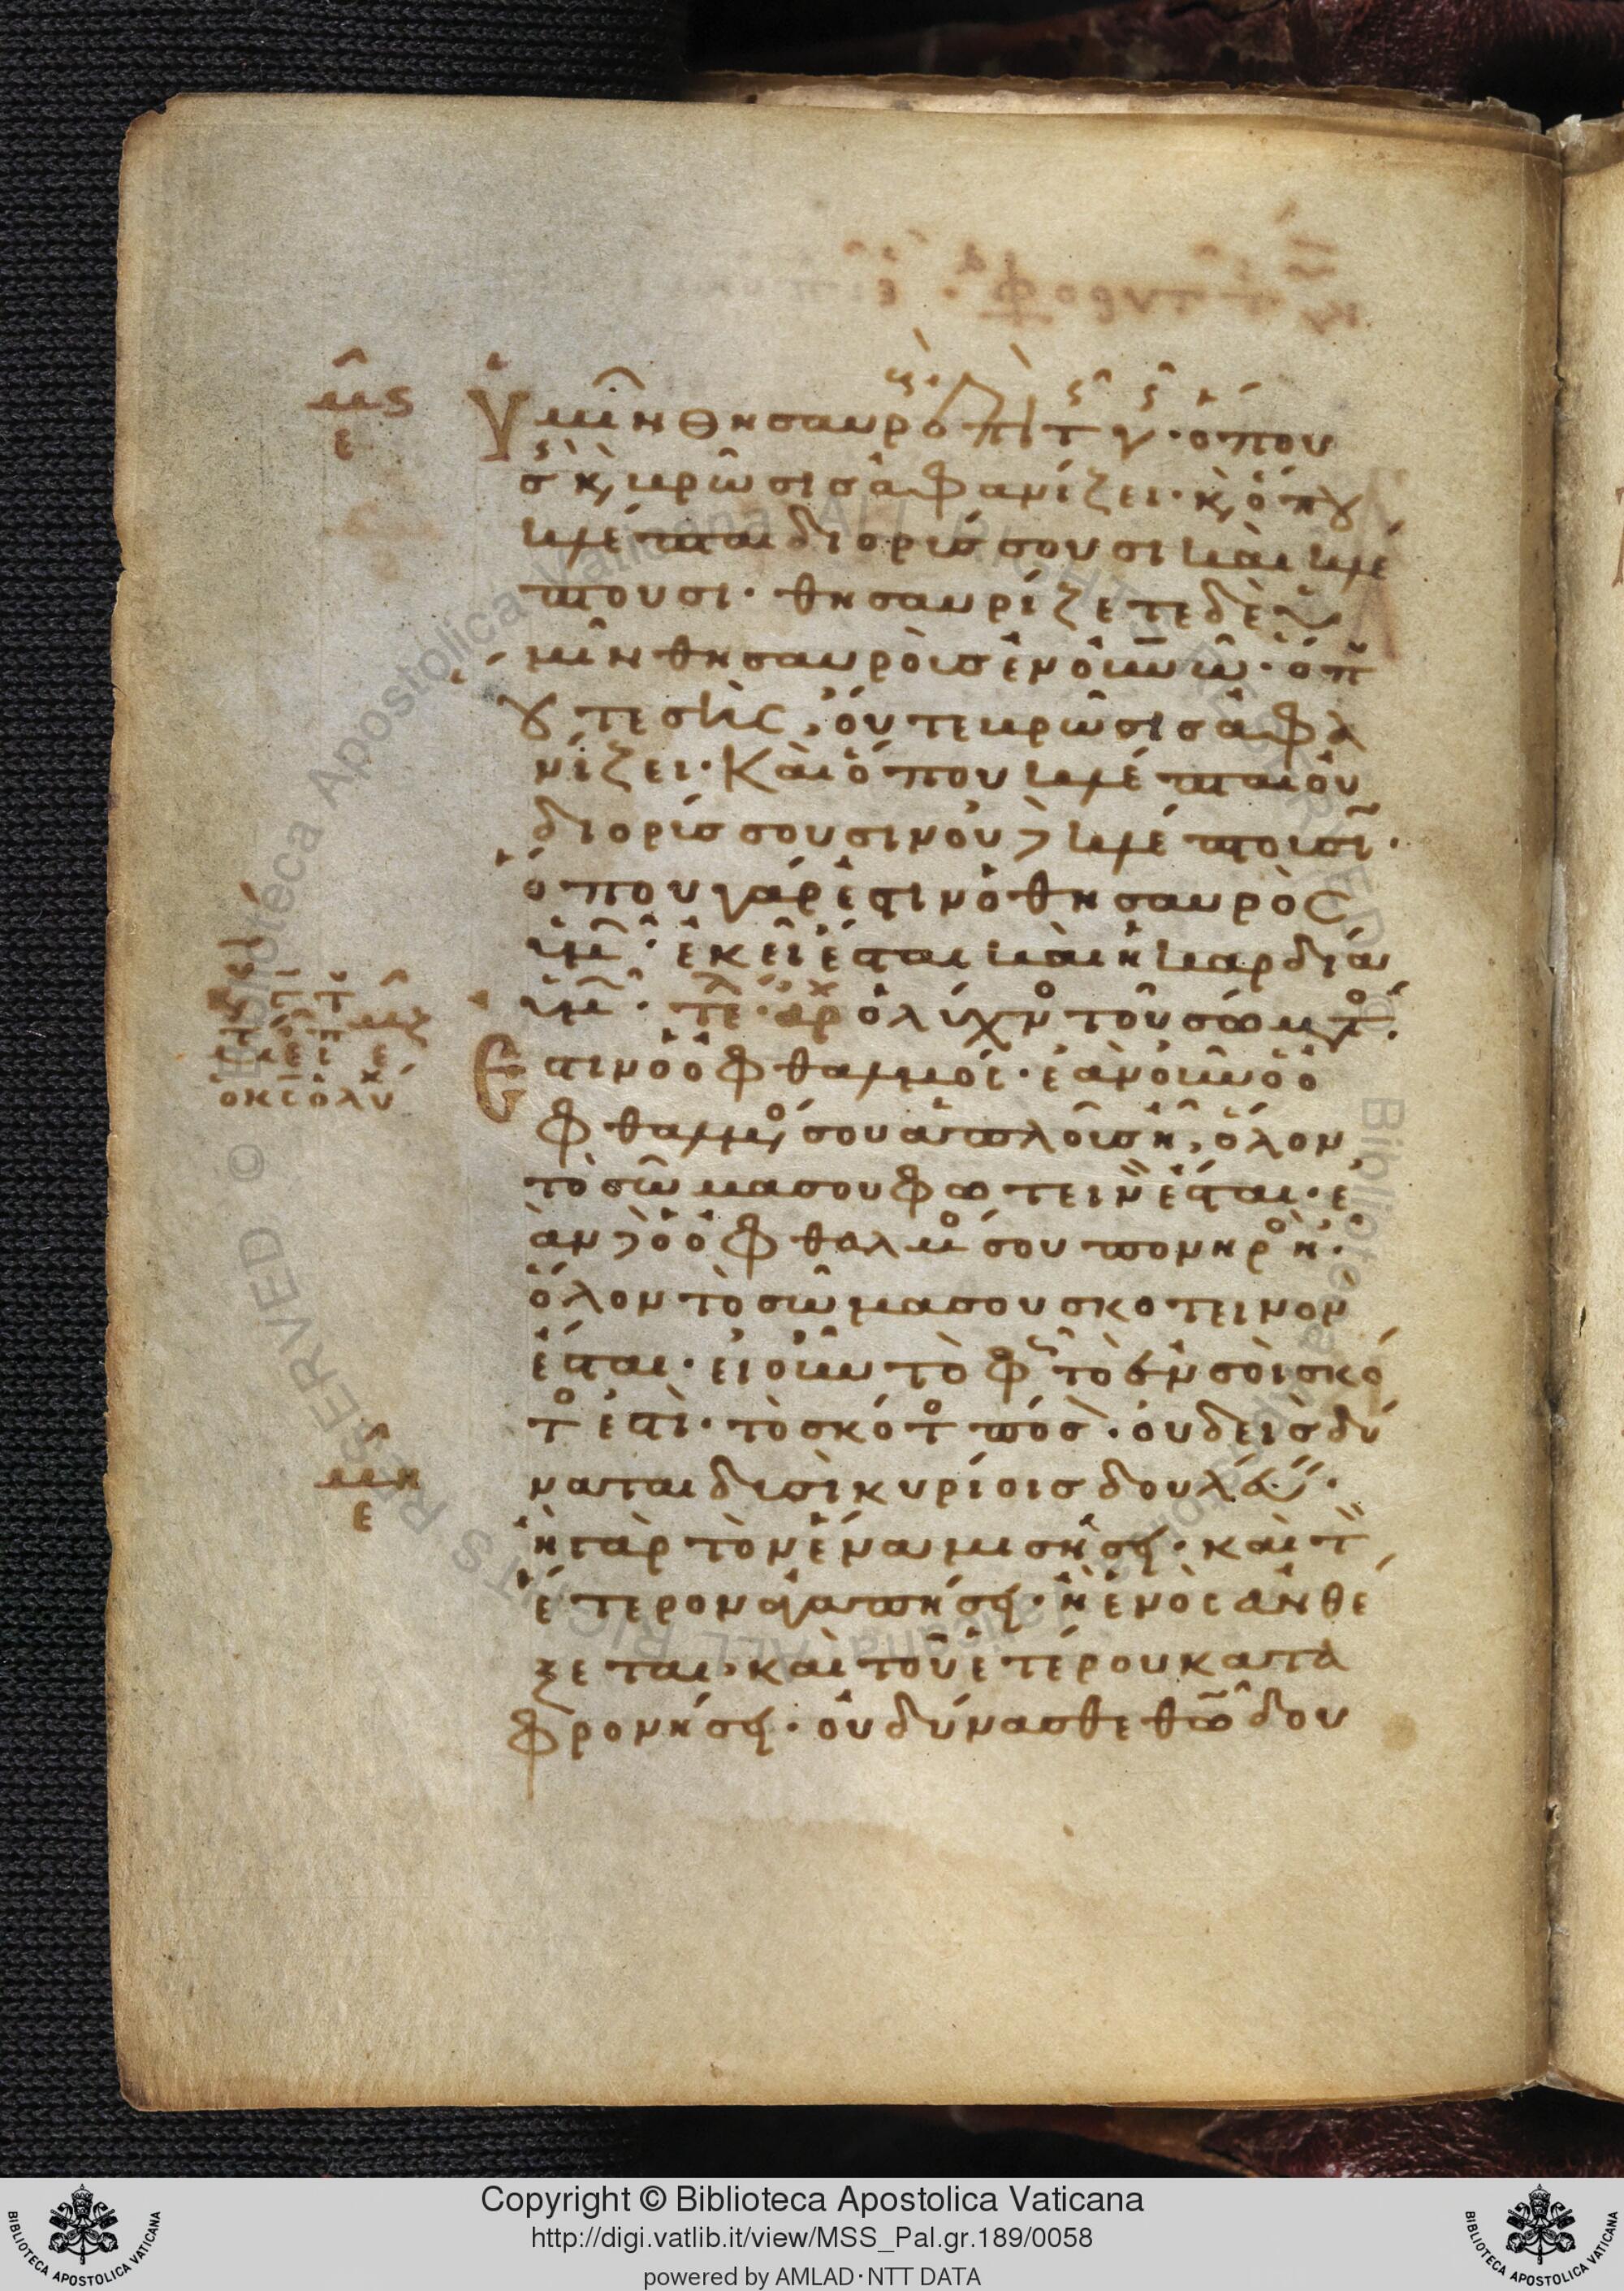 ὑμῖν θησαυροὺς ἐπὶ τῆς γῆς· ὅπου
σὴς κ̀ βρῶσις ἀφανίζει· κ̀ ὅπου
κλέπται διορύσσουσι καὶ κλέ
πτουσι· θησαυρίζετε δὲ ὑ
μῖν θησαυροὺς ἐν οὐνῶ· ὅπ
ου τε σὴς, οὔτε βρῶσις ἀφα
νίζει· Καὶ ὅπου κλέπται οὐ
διορύσσουσιν οὐδὲ κλέπτουσιν·
ὅπου γάρ ἐστιν ὁ θησαυρὸς
ὑμῶν· ἐκεῖ ἔσται καὶ ἡ καρδία
ὑμῶν· τε· αρχ ὁ λύχνος τοῦ σώματός
Εστιν ὁ ὀφθαλμός· ἐὰν οὖν ὁ ὀ
φθαλμός σου ἁπλοῦς ῆ, ὅλον
τὸ σῶμα σου φωτεινὸν ἔσται· ε
ὰν δὲ ὁ ὀφθαλμός σου πονηρὸς ῆ·
ὅλον τὸ σῶμα σου σκοτεινὸν
ἔσται· εἰ οὖν τὸ φῶς τὸ ἐν σοὶ σκό
τος ἐστὶ· τὸ σκότος πόσον· οὐδεὶς δύ
ναται δυσὶ κυρίοις δουλεύειν·
ἢ γὰρ τὸν ἕνα μισήσει· καὶ τὸν
ἕτερον ἀγαπήσει· ἢ ἑνὸς ἀνθέ
ξεται· καὶ τοῦ ἑτέρου κατα
φρονήσει· οὐ δύνασθε θῶ δου
μς
ε
μζ
ε
μη
ε
Copyright © Biblioteca Apostolica Vaticana
http://digi.vatlib.it/view/MSS_Pal.gr.189/0058
powered by AMLAD·NTT DATA
BIBLIOTECA APOSTOLICA VATICANA
BIBLIOTECA APOSTOLICA VATICANA